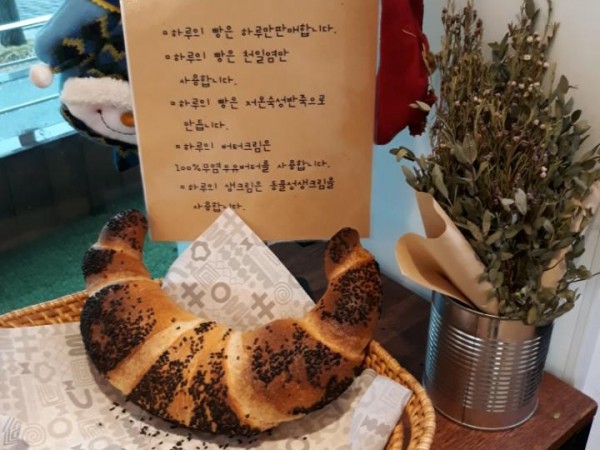 하루의 빵은 하루만판매합니다.
하루의 빵은 천일염만
사용합니다.
하루의 빵은 저온숙성반죽으로
만듭니다.
하루의 버터크림은
100%무염우유버터를 사용합니다.
하루의 생크림은 동물성생크림을
사용합니다.